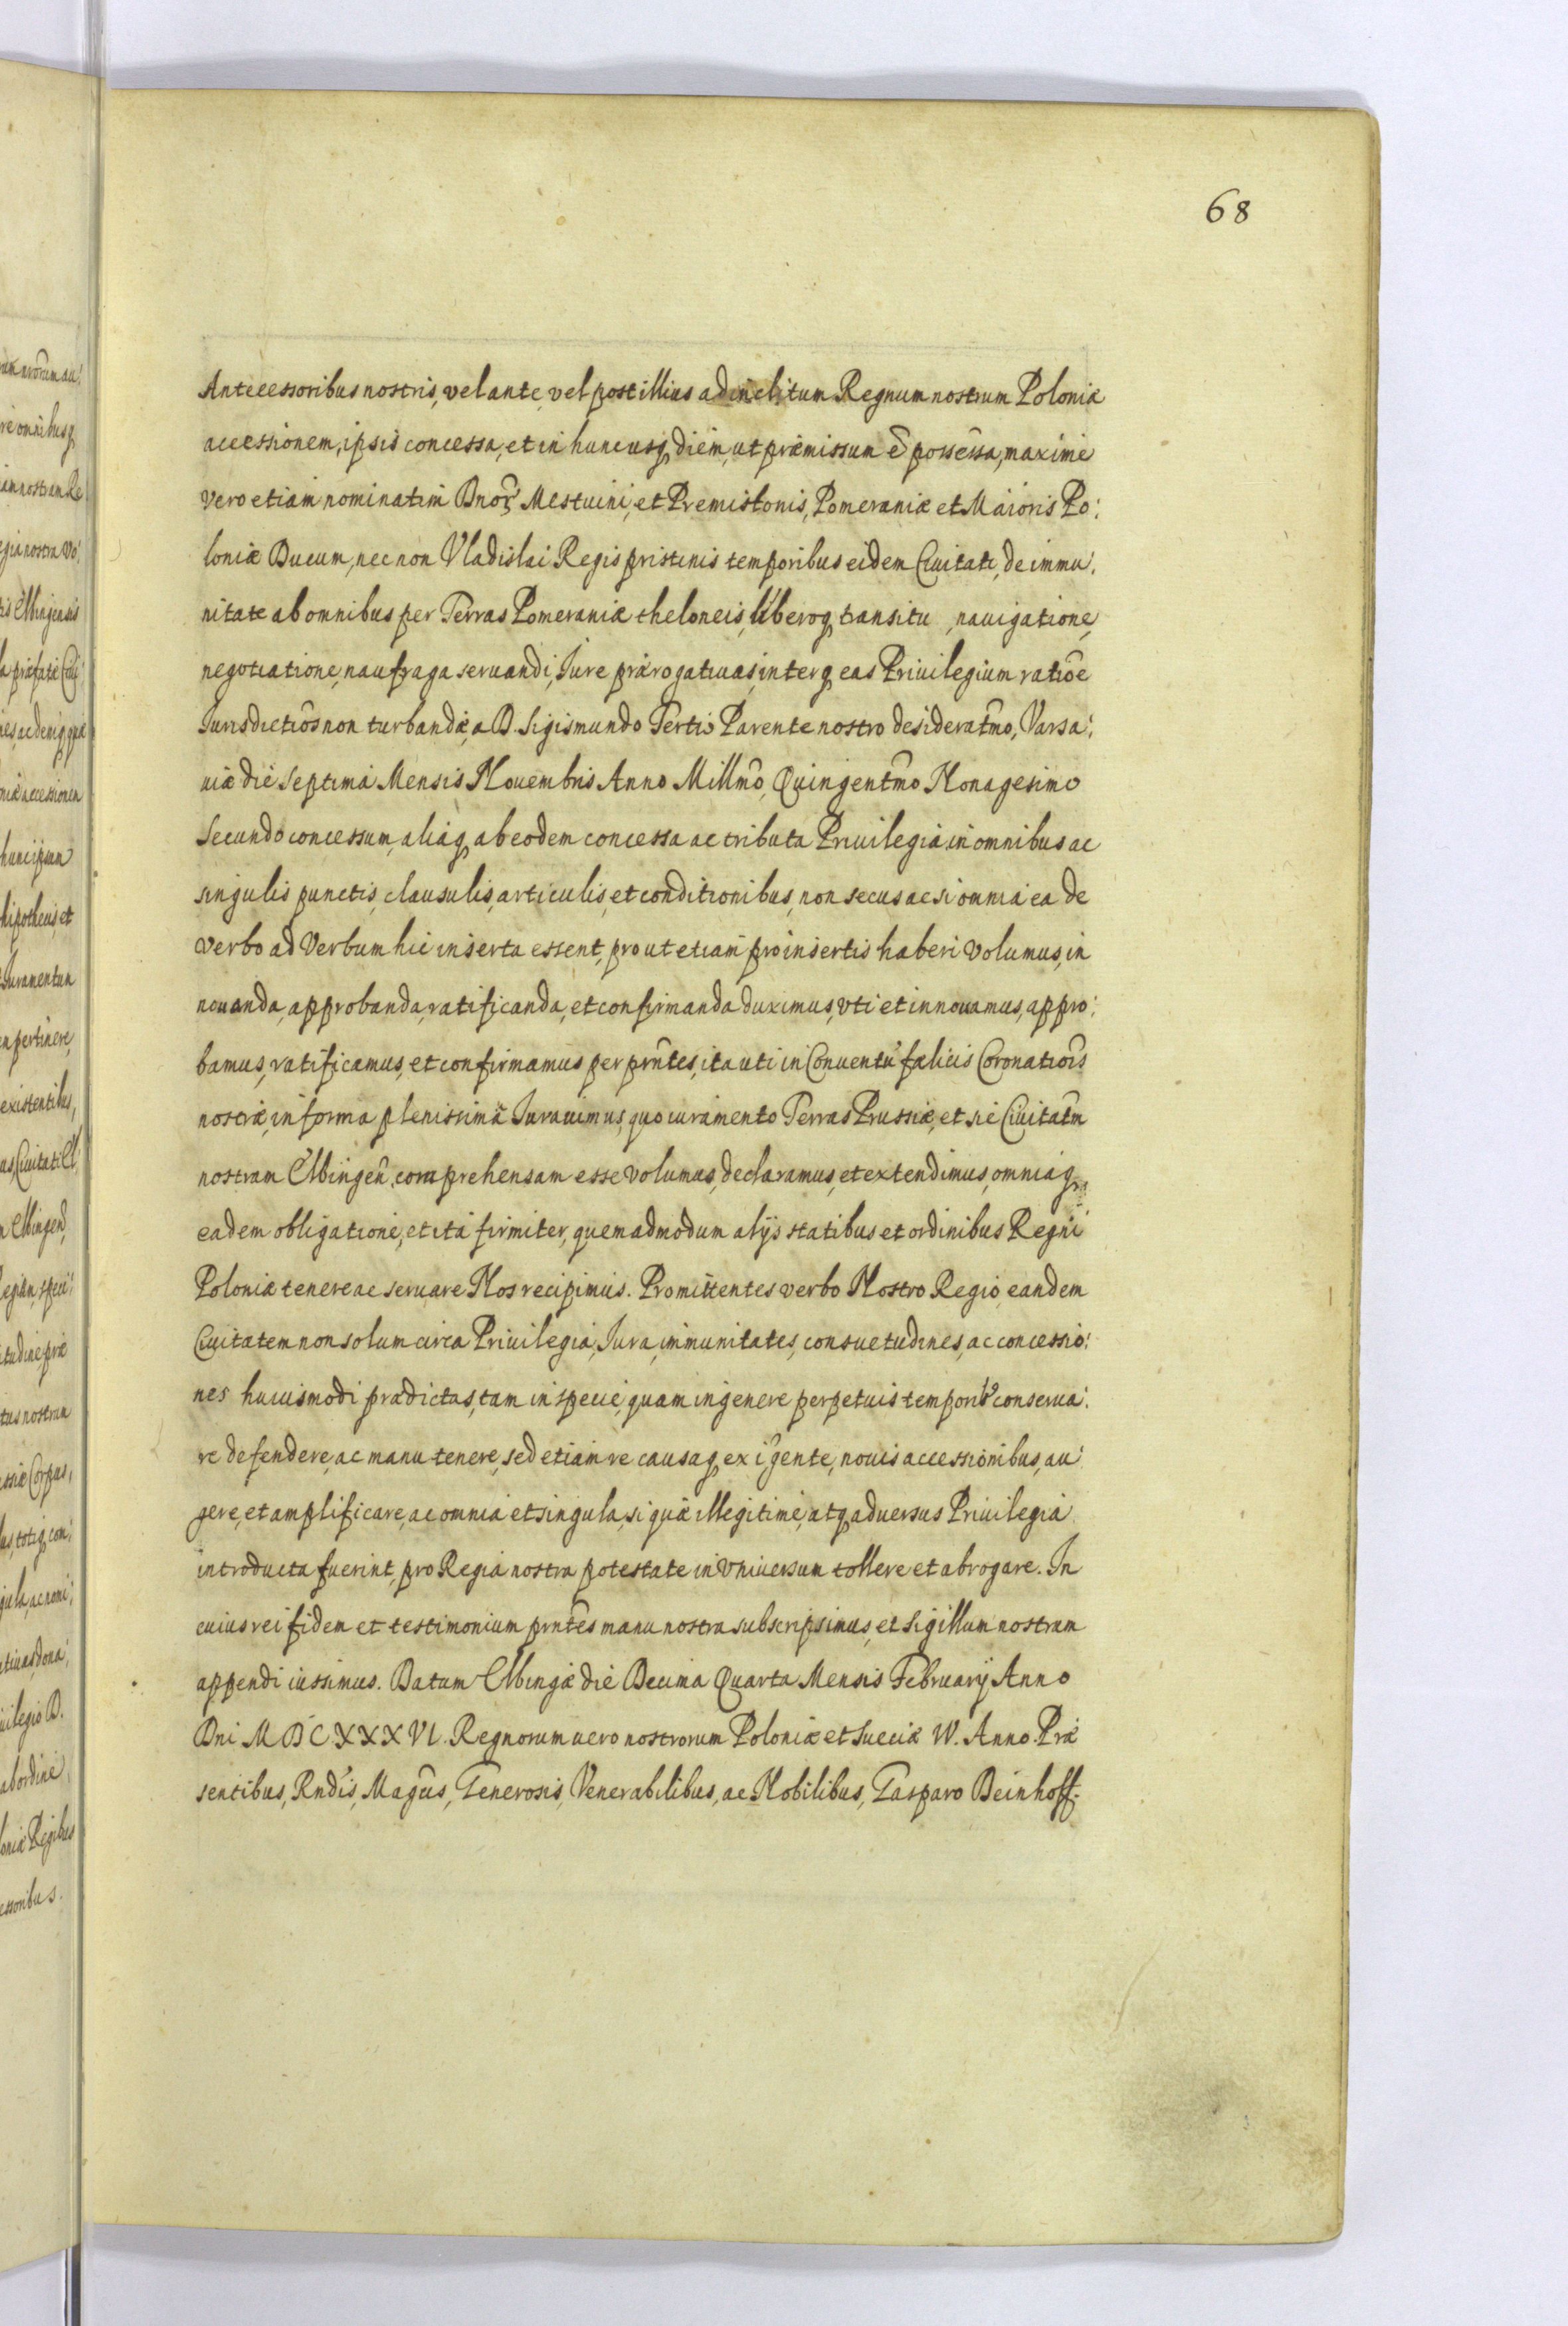 68
Antecessoribus nostris, vel ante, vel post illius ad inclitum Regnum nostrum Poloniæ
accessionem, ipsis concessa, et in huncusq, diem, ut præmissum ẽ possessa, maxime
vero etiam nominatim Dnoꝝ Mestuini, et Premislonis, Pomeraniæ et Maioris Po:
loniæ Ducum, nec non Vladislai Regis pristinis temporibus eidem Ciuitati, de immu:
nitate ab omnibus per Terras Pomeraniæ theloneis, liberoq, transitu, nauigatione,
negotiatione, naufraga seruandi, Jure prærogatiuas, interq, eas Priuilegium ratiõe
Jurisdictiõs non turbandæ, a D. Sigismundo Tertio Parente nostro desideratm̃o, Varsa:
uiæ die Septima Mensis Nouembris Anno Millm̃o, Quingentm̃o Nonagesimo
Secundo concessum, aliaq, ab eodem concessa ac tributa Priuilegia in omnibus ac
singulis punctis, clausulis, articulis, et conditionibus, non secus ac si omnia ea de
verbo ad Verbum hic inserta essent, prout etiam pro insertis haberi volumus, in
nouanda, approbanda, ratificanda, et confirmanda duximus, vti et innouamus, appro:
bamus, ratificamus, et confirmamus per prñtes, ita uti in Conuentu fælicis Coronatiõis
nostræ, in forma plenissima Jurauimus, quo iuramento Terras Prussiæ, et sic Ciuitatm̃
nostram Elbingeñ. comprehensam esse volumus, declaramus, et extendimus, omniaq,
eadem obligatione, et ita firmiter, quemadmodum alijs statibus et ordinibus Regni
Poloniæ tenere ac seruare Nos recipimus. Promittentes verbo Nostro Regio, eandem
Ciuitatem non solum circa Priuilegia, Jura, immunitates, consuetudines, ac concessio:
nes huiusmodi prædictas, tam in specie, quam in genere perpetuis temporib9 conserua:
re defendere, ac manu tenere, sed etiam re causaq, exigente, nouis accessionibus, au:
gere, et amplificare, ac omnia et singula, si quæ illegitime, atq, aduersus Priuilegia
introducta fuerint, pro Regia nostra potestate in vniuersum tollere et abrogare. In
cuius rei fidem et testimonium prñtes manu nostra subscripsimus, et Sigillum nostrum
appendi iussimus. Datum Elbingæ die Decima Quarta Mensis Februarij Anno
Dni MDCXXXVI. Regnorum uero nostrorum Poloniæ et Sueciæ IV. Anno. Præ
sentibus, Rndis, Magcis, Generosis, Venerabilibus, ac Nobilibus, Gasparo Deinhoff.